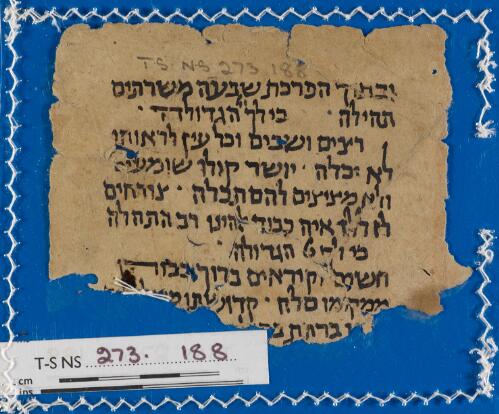 T-S NS 273 188
ובתוך הפרכת שבעה משרתים
תהילה · כי לך הגדולה
רצים ושבים וכל עין לראותו
לא יכלה · יושר קולו שומעים
ולא מציצים להסתכלה · צורחים
לזה איה כבוד רב התהלה
כי לך הגדולה ·
חשמל קוראים ברוך כבוד
ממקומו סלה · קדושתו
T-S NS 273. 188
cm
ins